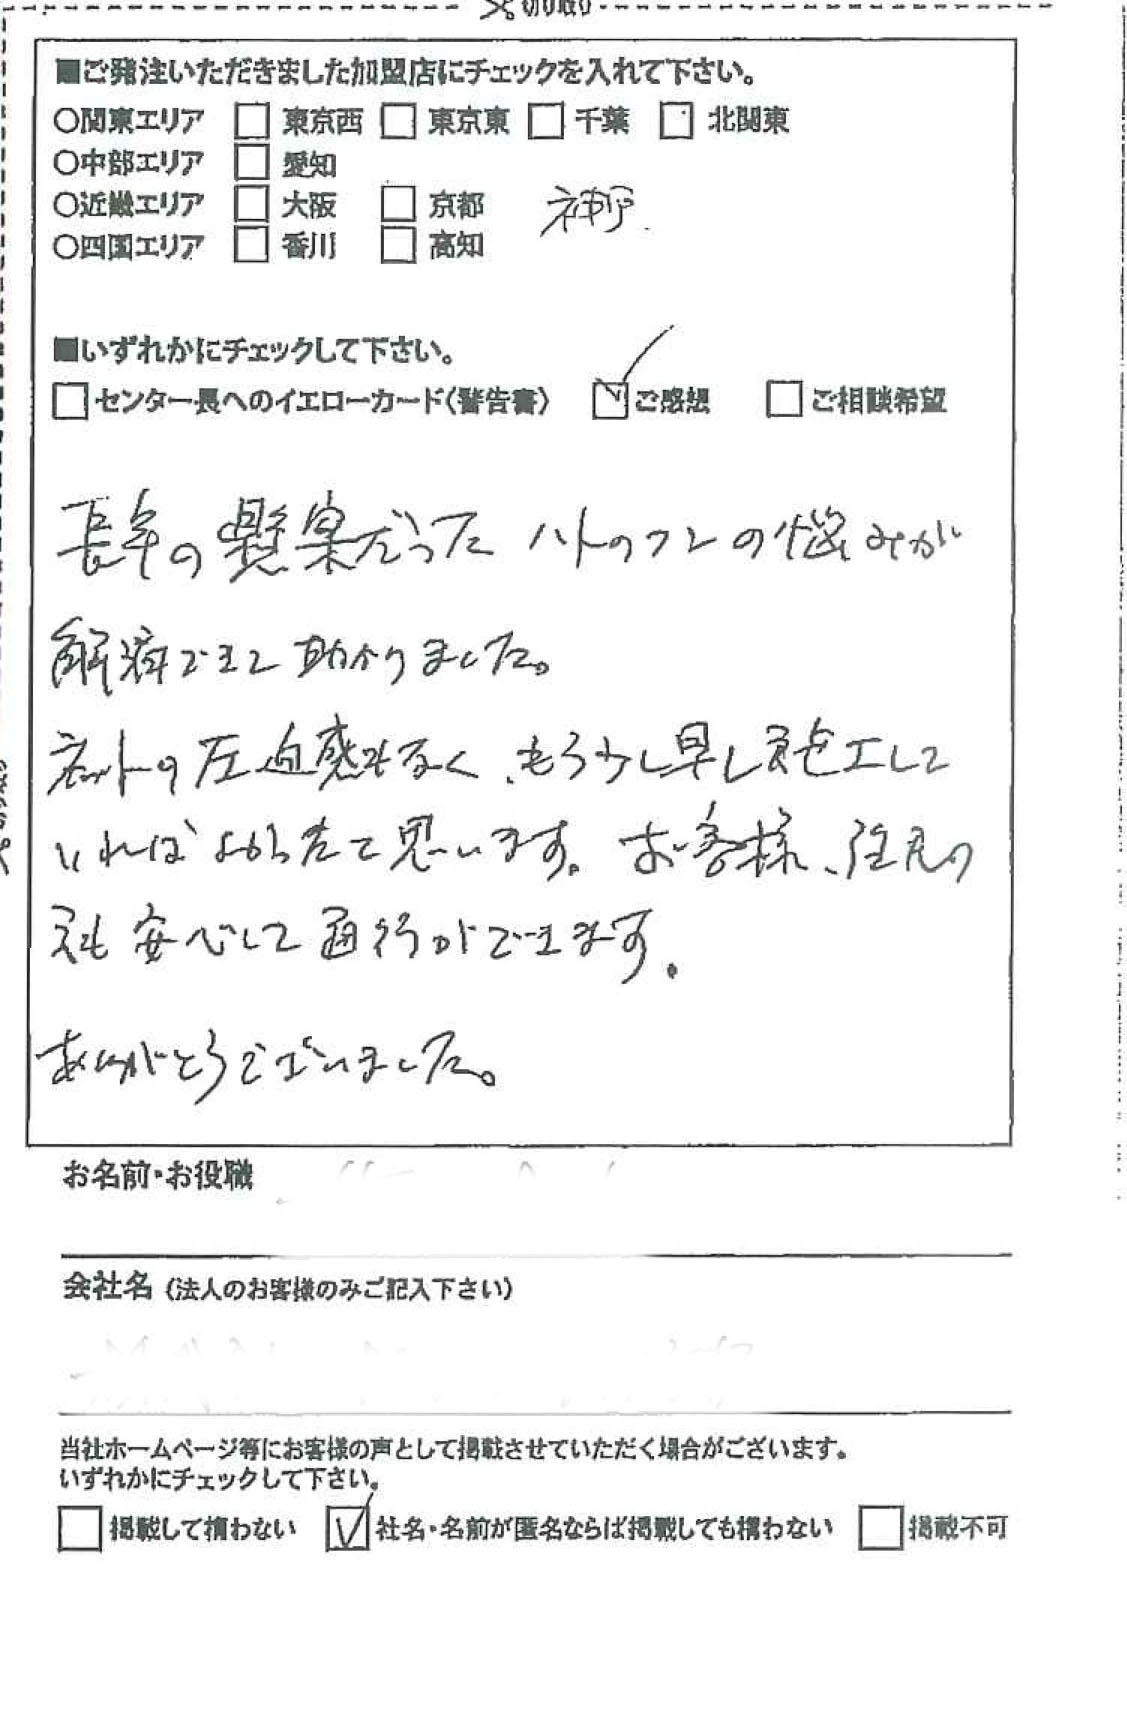 切り取り
■ご発注いただきました加盟店にチェックを入れて下さい。
○関東エリア □ 東京西 □ 東京東 □ 千葉 □ 北関東
○中部エリア □ 愛知
○近畿エリア □ 大阪 □ 京都 神戸.
○四国エリア □ 香川 □ 高知
■いずれかにチェックして下さい。
□センター長へのイエローカード〈警告書〉 ☑ご感想 □ご相談希望
長年の懸案だった ハトのフンの悩みが
解消できて 助かりました。
ネットの圧迫感もなく、もう少し早く施工して
いれば よかったと思います。お客様、住民の
方も 安心して 通行ができます。
ありがとうございました。
お名前・お役職
会社名（法人のお客様のみご記入下さい）
当社ホームページ等にお客様の声として掲載させていただく場合がございます。
いずれかにチェックして下さい。
□掲載して構わない ☑社名・名前が匿名ならば掲載しても構わない □掲載不可